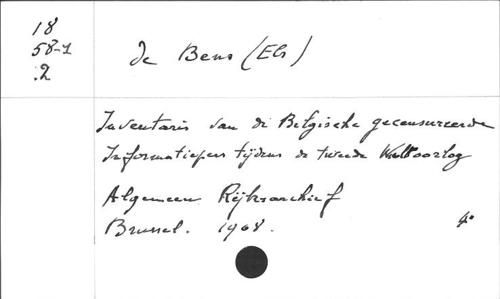 18
58-1
.2
De Bens (Els)
Inventaris van de Belgische gecensureerde
Informatiepers tijdens de tweede Wereldoorlog
Algemeen Rijksarchief
Brussel. 1968.
4°